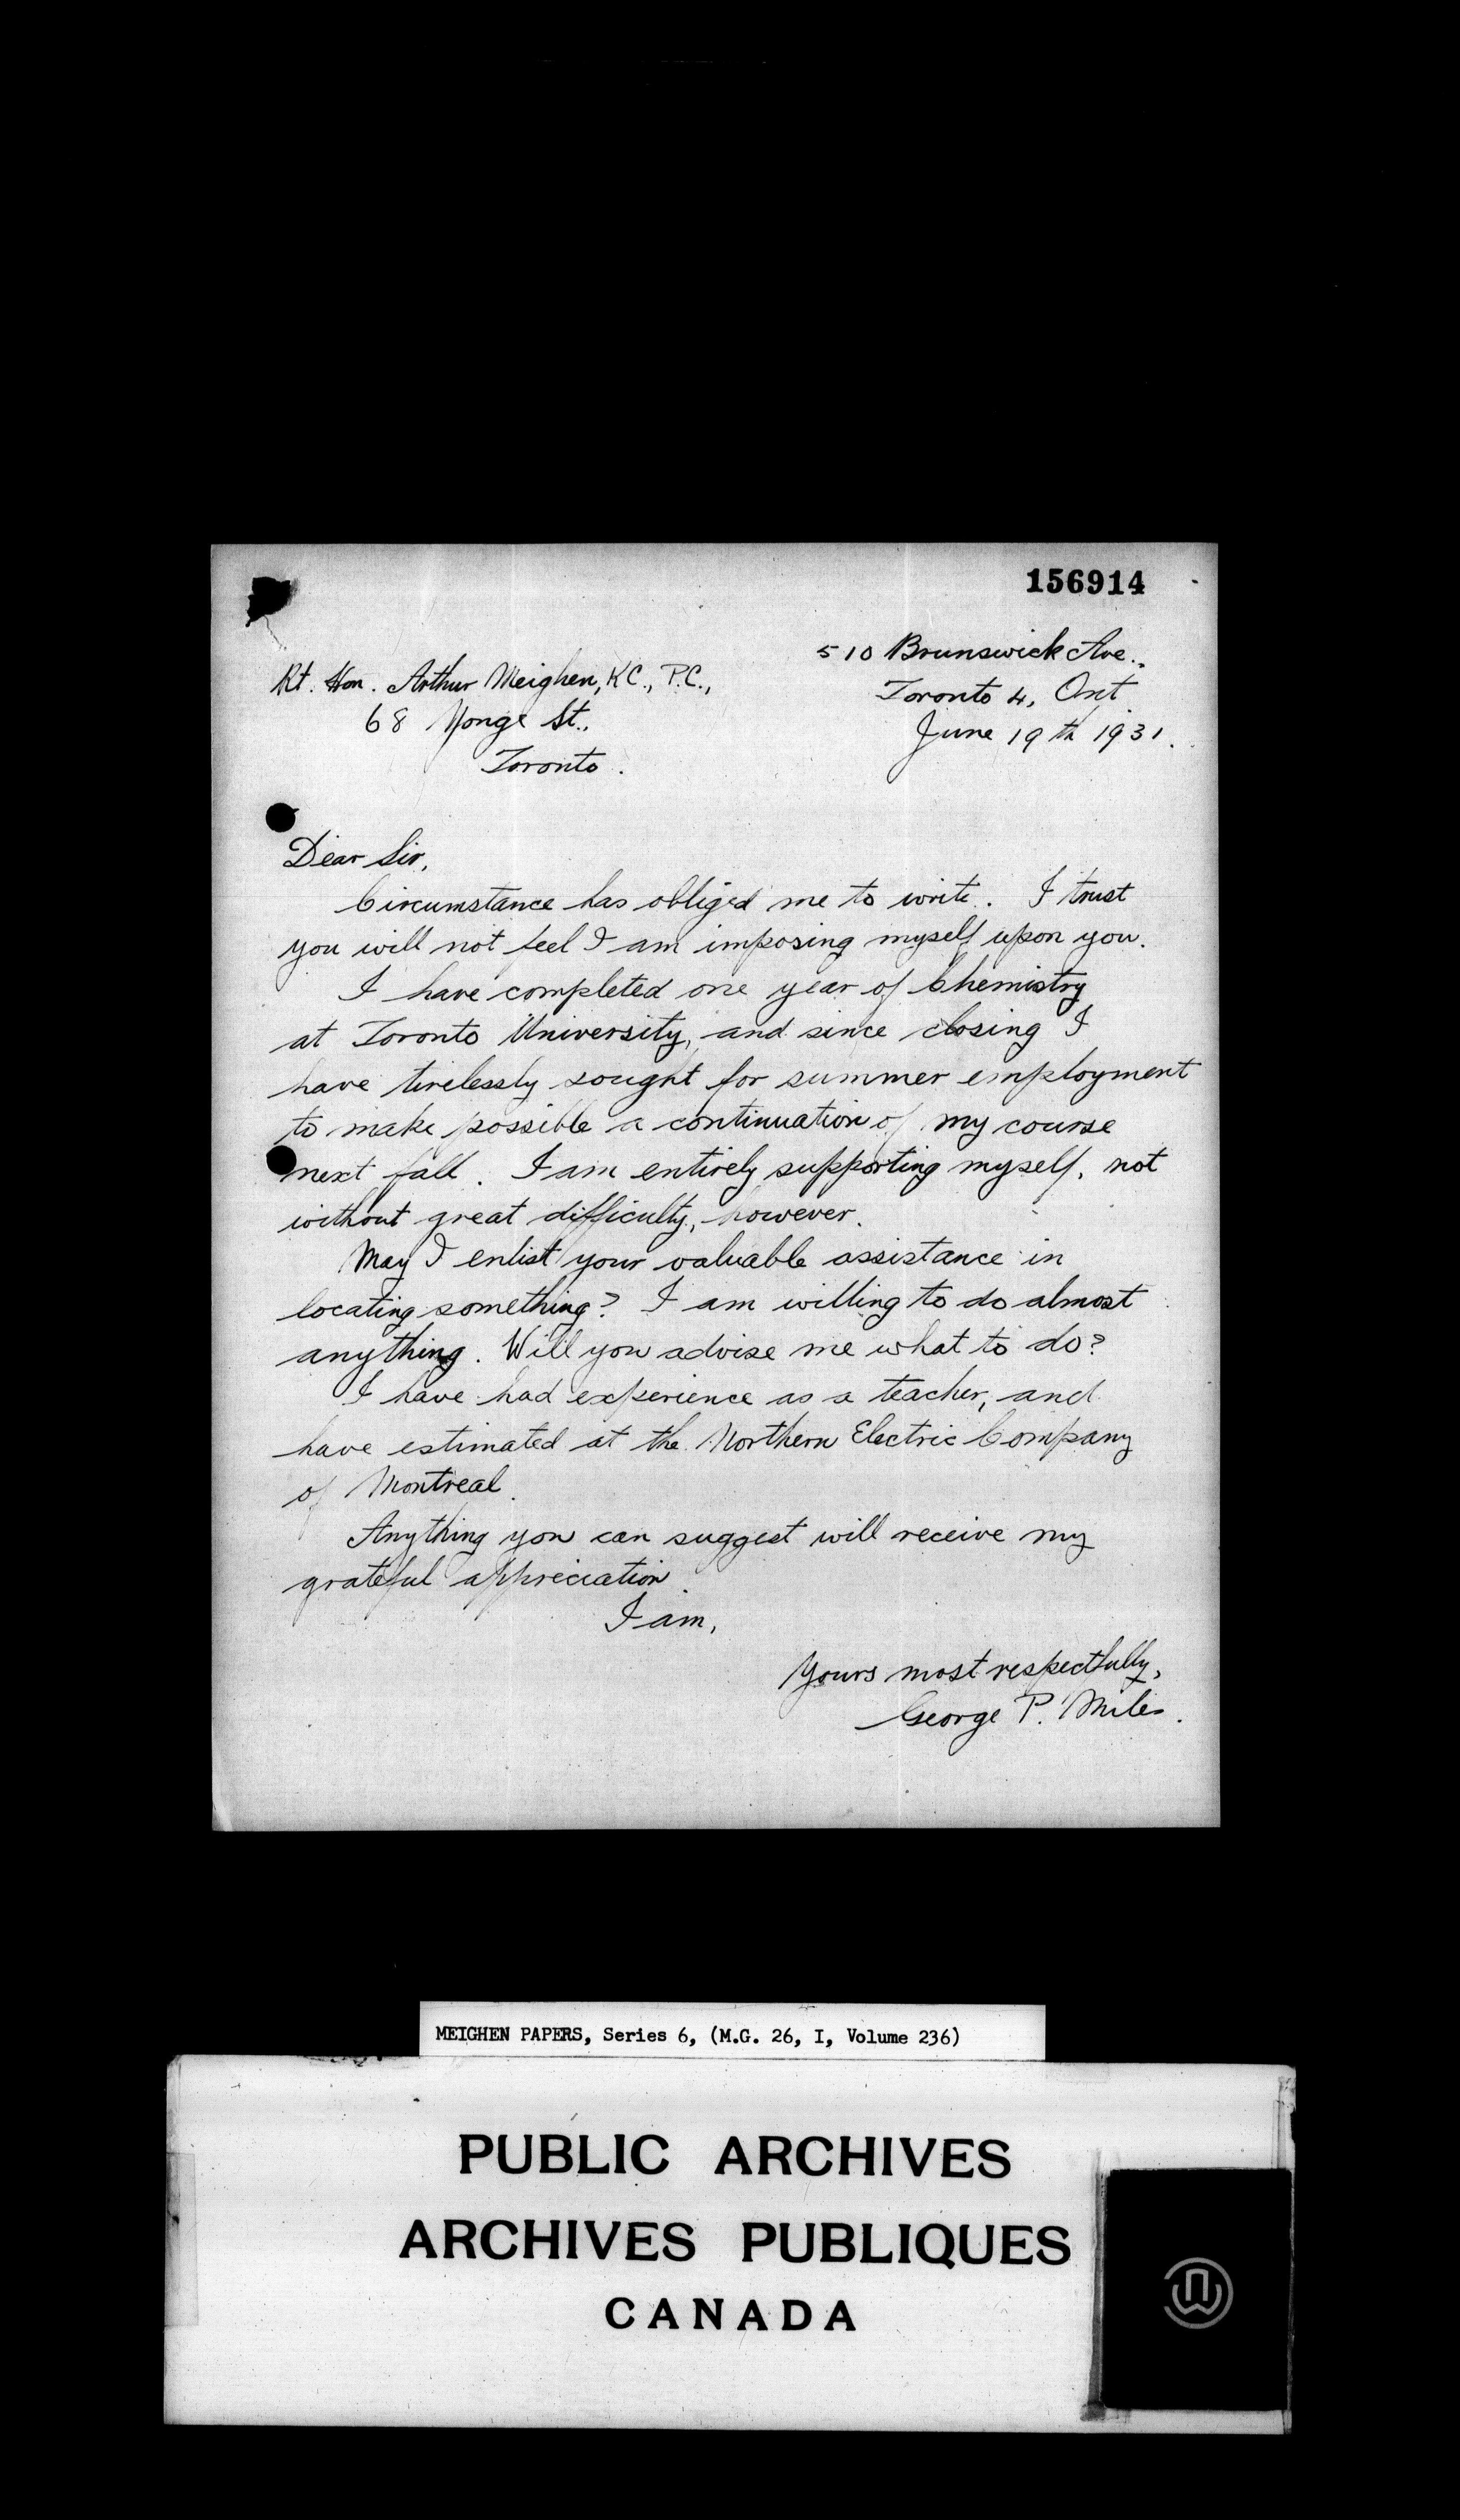 156914
510 Brunswick Ave.,
Toronto 4, Ont.
June 19th 1931.
Rt. Hon. Arthur Meighen, K.C., P.C.,
68 Yonge St.,
Toronto.
Dear Sir,
Circumstance has obliged me to write. I trust
you will not feel I am imposing myself upon you.
I have completed one year of Chemistry
at Toronto University, and since closing I
have tirelessly sought for summer employment
to make possible a continuation of my course
next fall. I am entirely supporting myself, not
without great difficulty, however.
May I enlist your valuable assistance in
locating something? I am willing to do almost
anything. Will you advise me what to do?
I have had experience as a teacher, and
have estimated at the Northern Electric Company
of Montreal.
Anything you can suggest will receive my
grateful appreciation.
I am,
Yours most respectfully,
George P. Miles.
MEIGHEN PAPERS, Series 6, (M.G. 26, I, Volume 236)
PUBLIC ARCHIVES
ARCHIVES PUBLIQUES
CANADA